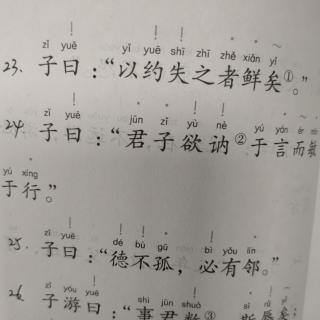 zǐ yuē yǐ yuē shī zhī zhě xiǎn yǐ
23. 子曰：“以约失之者鲜矣①。”
zǐ yuē jūn zǐ yù nè yú yán ér
24. 子曰：“君子欲讷②于言而敏
yú xíng
于行。”
zǐ yuē dé bù gū bì yǒu lín
25. 子曰：“德不孤，必有邻。”
zǐ yóu yuē shì jūn shuò sī rǔ
26. 子游曰：“事君数③，斯辱矣